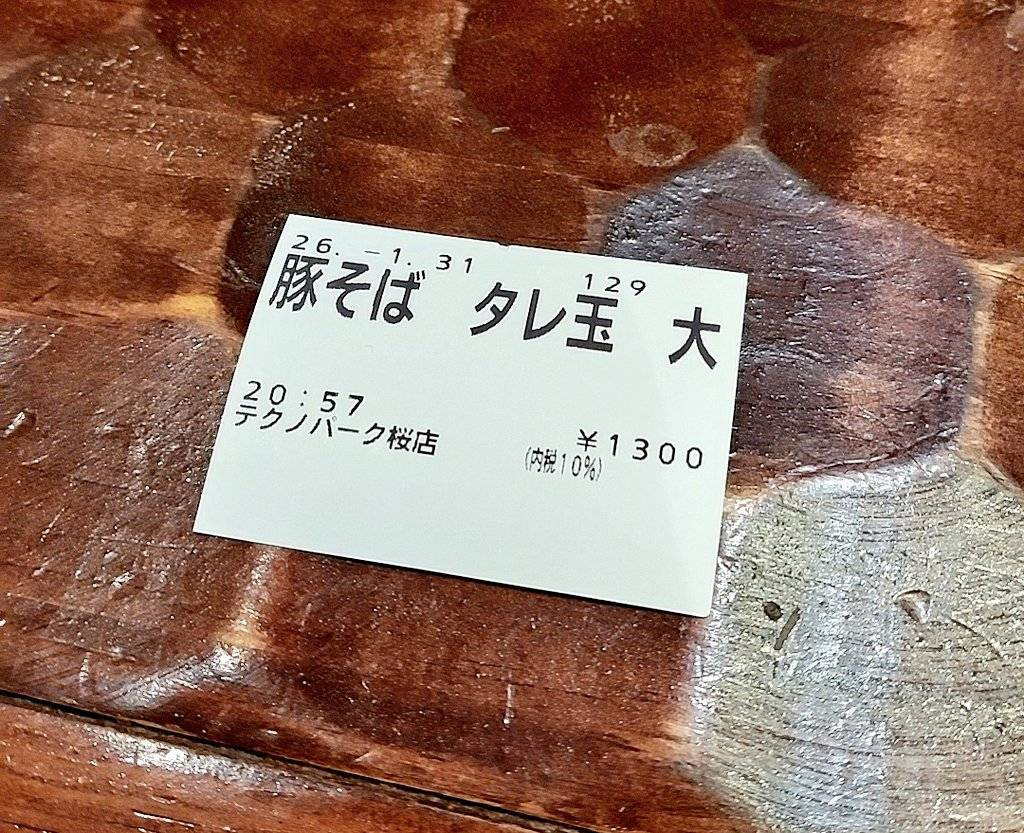 26.-1.31 129
豚そば タレ玉 大
20:57
テクノパーク桜店 ¥1300
(内税10%)